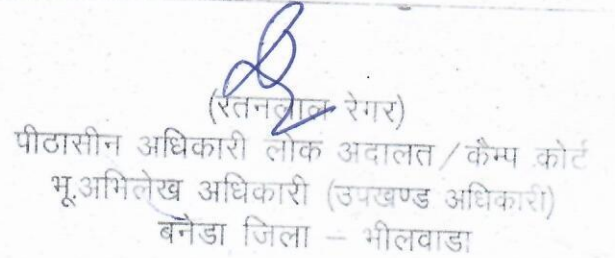 (रतनलाल रेगर)
पीटासीन अधिकारी लोक अदालत / कैम्प कोर्ट
भू.अभिलेख अधिकारी (उपखण्ड अधिकारी)
बनेडा जिला – भीलवाडा